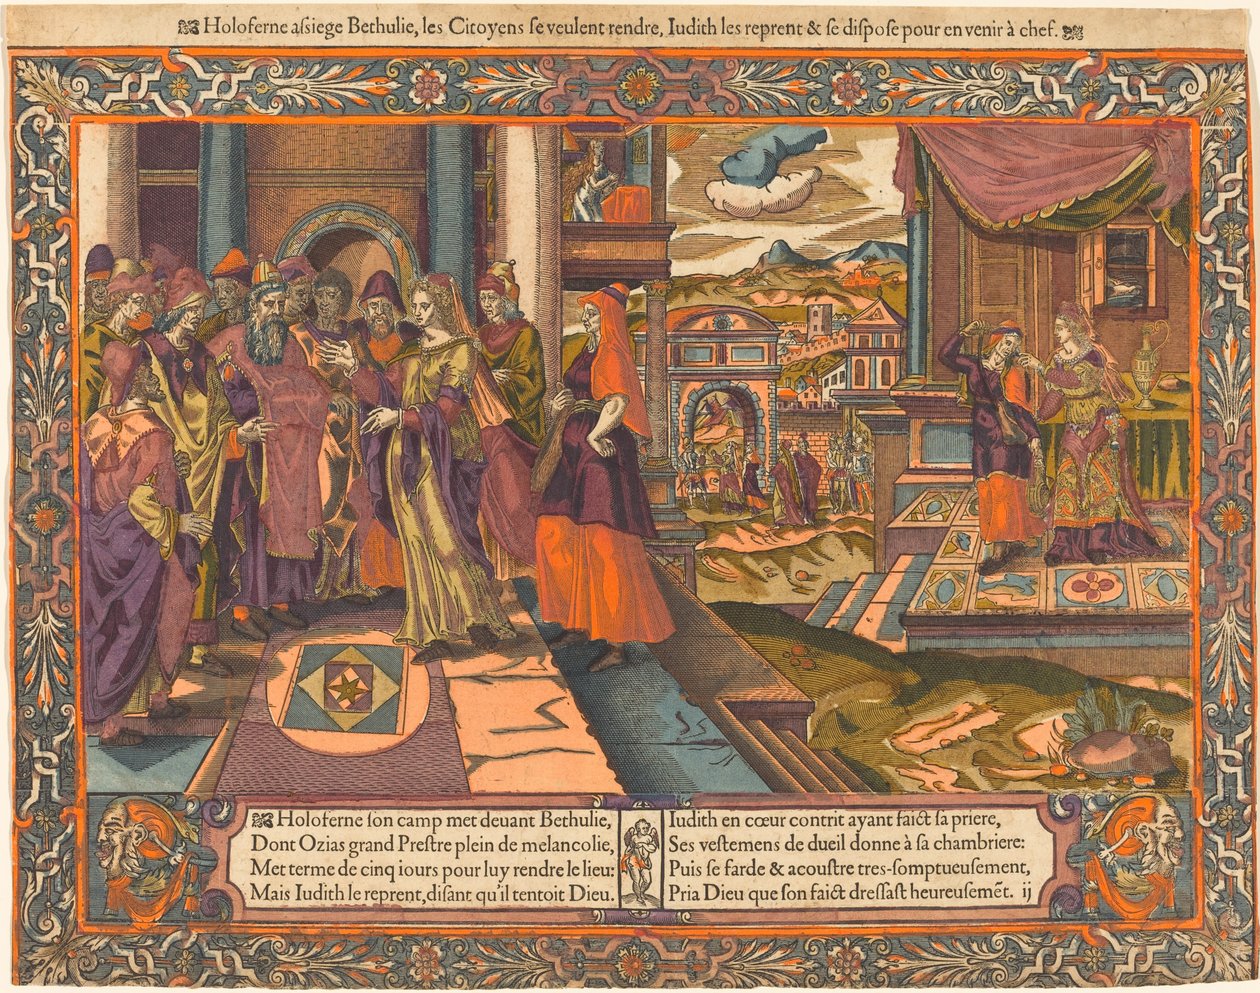 Holoferne aſsiege Bethulie, les Citoyens ſe veulent rendre, Iudith les reprent & ſe diſpoſe pour en venir à chef.
Holoferne ſon camp met deuant Bethulie,
Dont Ozias grand Preſtre plein de melancolie,
Met terme de cinq iours pour luy rendre le lieu:
Mais Iudith le reprent, diſant qu'il tentoit Dieu.
Iudith en cœur contrit ayant faict ſa priere,
Ses veſtemens de dueil donne à ſa chambriere:
Puis ſe farde & acouſtre tres-ſomptueuſement,
Pria Dieu que ſon faict dreſſaſt heureuſemẽt. ij